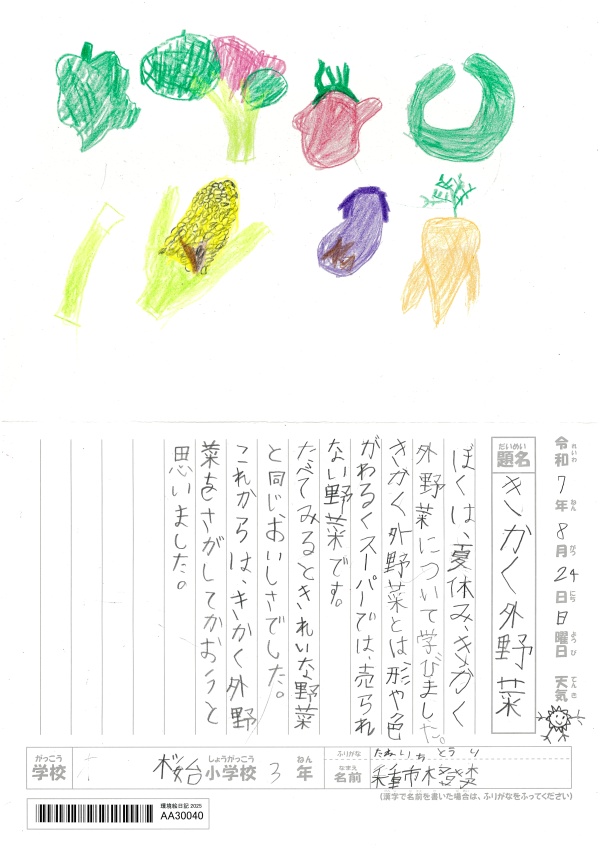 令和7年8月24日日曜日 天気
れいわ ねん がつ にち ようび てんき
だいめい
題名 きかく外野菜
ぼくは、夏休み、きかく
外野菜について学びました。
きかく外野菜とは形や色
がわるくスーパーでは、売られ
ない野菜です。
たべてみるときれいな野菜
と同じ、おいしさでした。
これからは、きかく外野
菜をさがしてかおうと
思いました。
がっこう しょうがっこう ねん
学校 桜台小学校 3年
ふりがな たねいち とうり
なまえ
名前 種市
(漢字で名前を書いた場合は、ふりがなをふってください)
環境絵日記 2025
AA30040